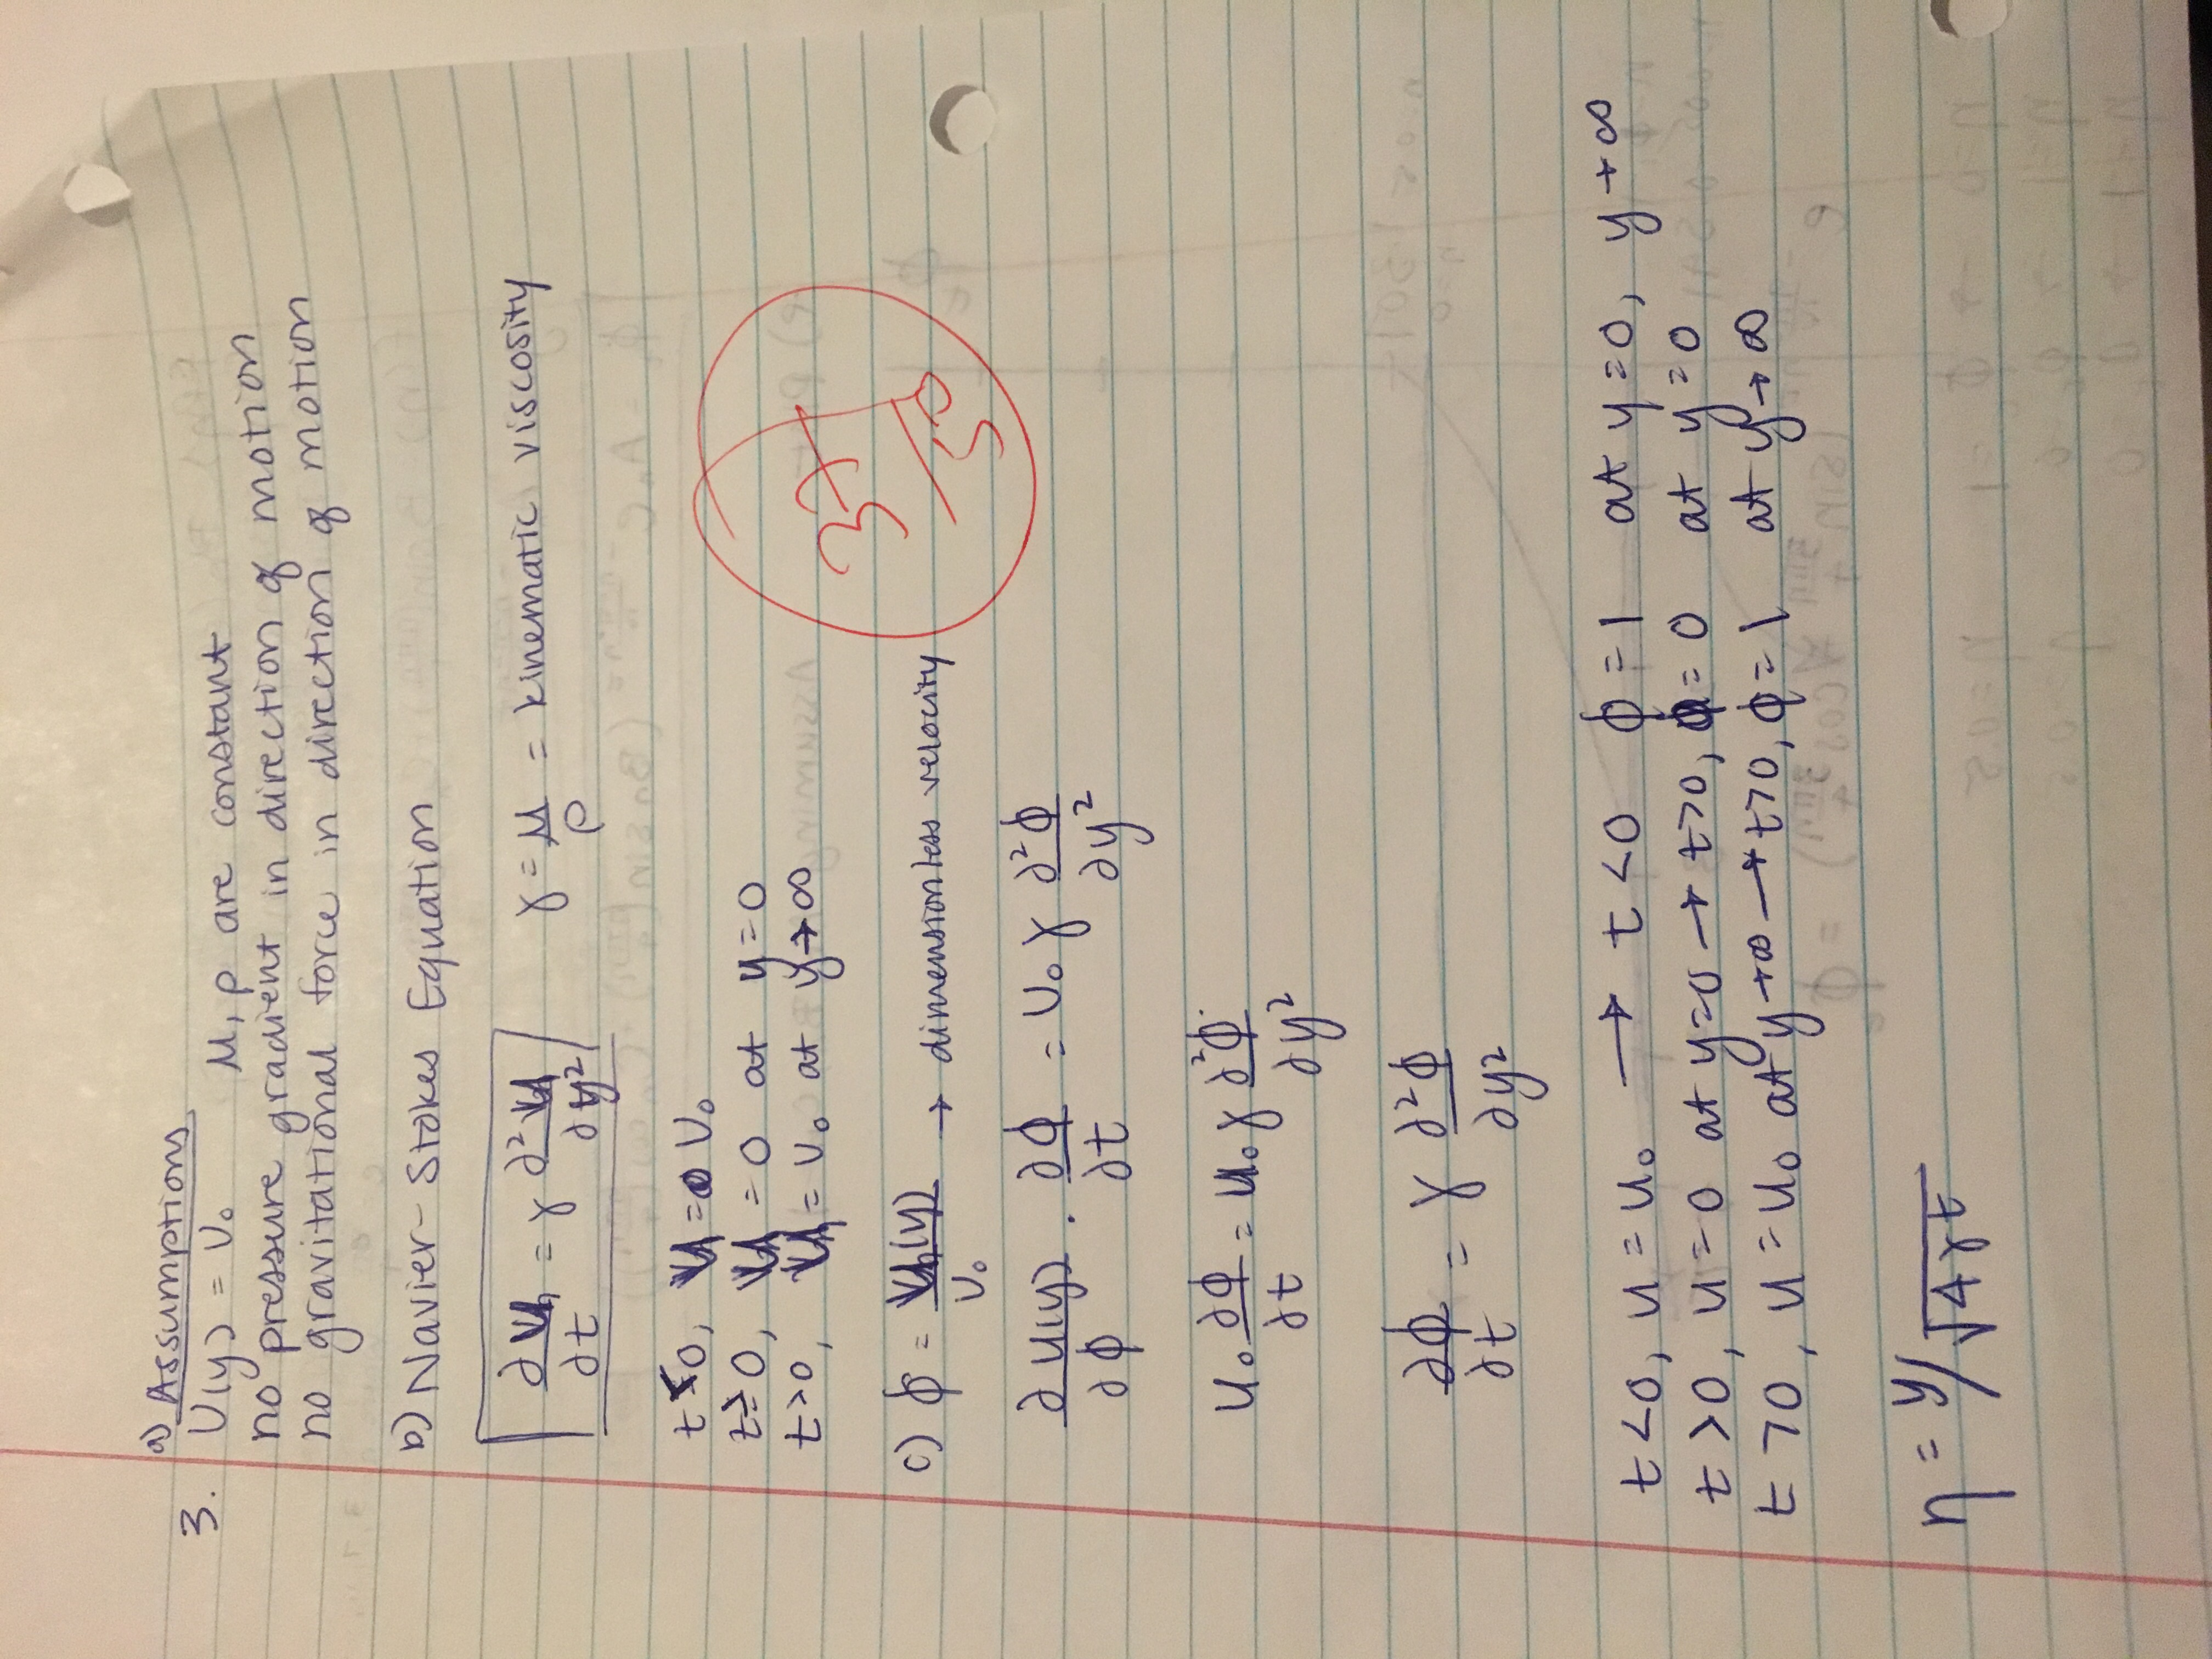 a) Assumptions
3. U(y) = U₀ μ, ρ are constant
no pressure gradient in direction of motion
no gravitational force in direction of motion
b) Navier-Stokes Equation
∂u/∂t = γ ∂²u/∂y² γ = μ/ρ = kinematic viscosity
t<0, u = U₀
t≥0, u = 0 at y=0
t>0, u = U₀ at y→∞
37/50
c) ϕ = u(y)/U₀ → dimensionless velocity
∂u(y)/∂ϕ · ∂ϕ/∂t = U₀ γ ∂²ϕ/∂y²
u₀ ∂ϕ/∂t = u₀ γ ∂²ϕ/∂y²
∂ϕ/∂t = γ ∂²ϕ/∂y²
t<0, u = u₀ → t<0 ϕ=1 at y=0, y→∞
t>0, u=0 at y=0 → t>0, ϕ=0 at y=0
t>0, u=u₀ at y→∞ → t>0, ϕ=1 at y→∞
η = y/√4γt